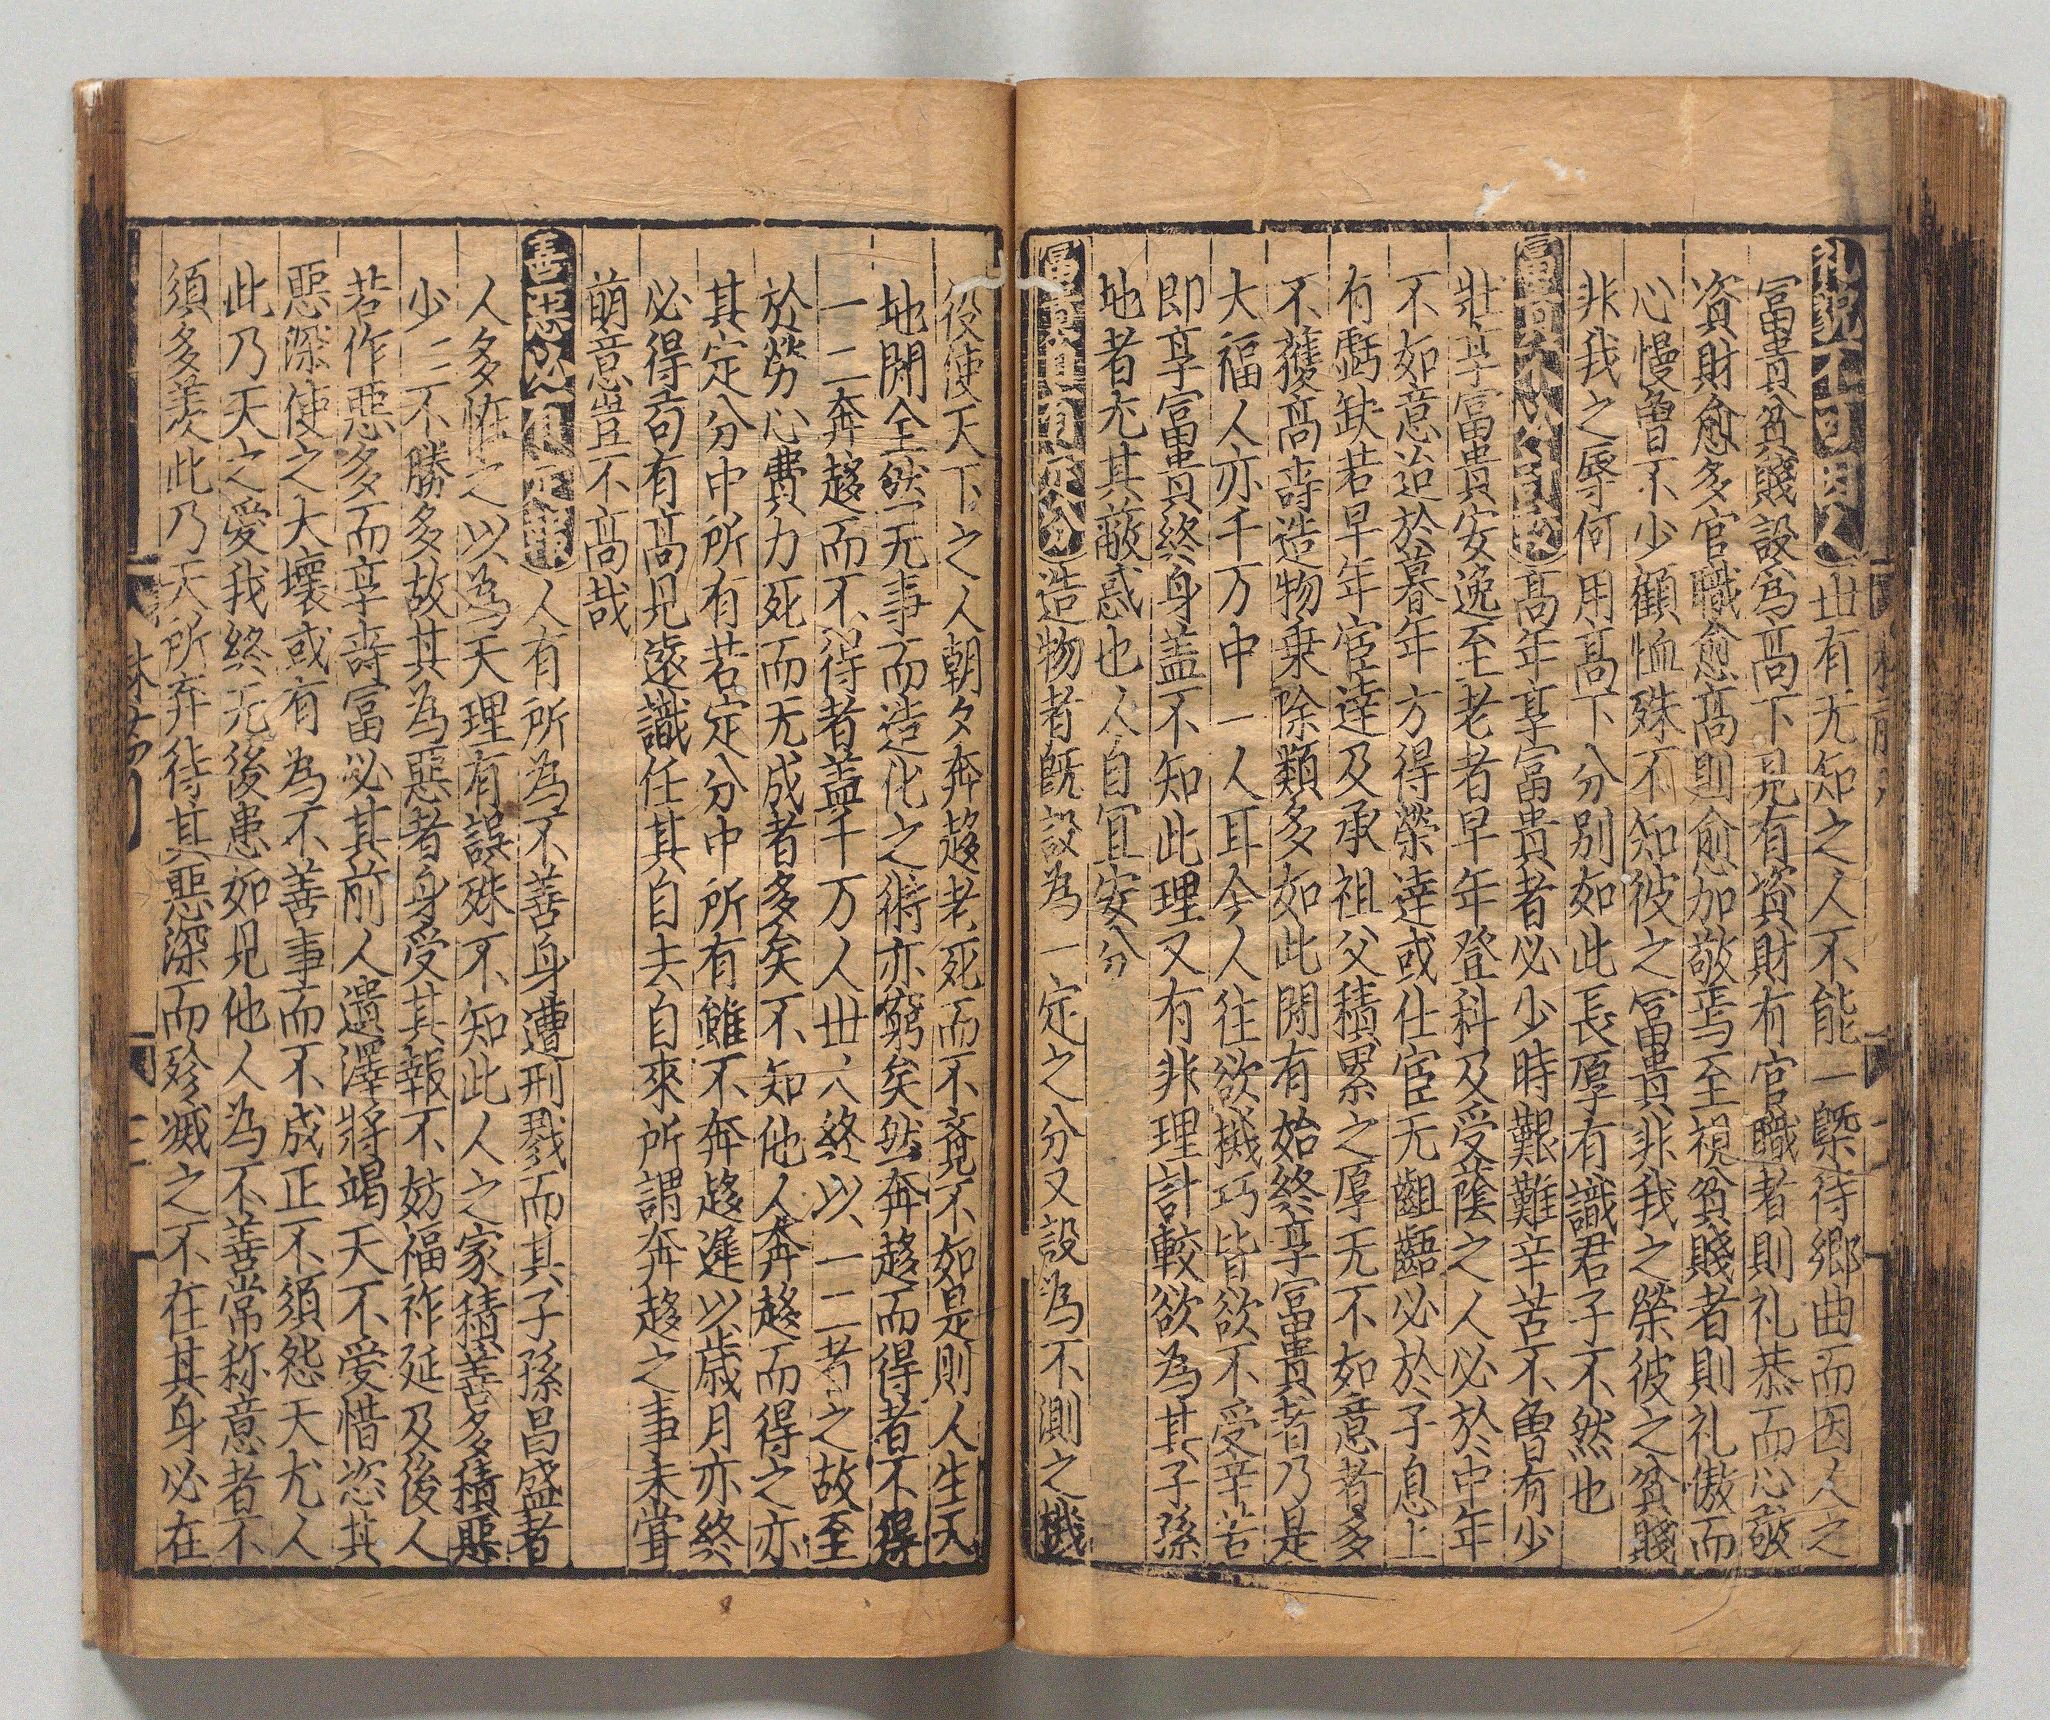 礼貌不可因人世有无知之人不能一槩待郷曲而因人之
冨貴貧賤設為髙下見有資財有官職者則礼恭而心敬
資財愈多官職愈髙則愈加敬焉至視貧賤者則礼傲而
心慢魯不少顧恤殊不知彼之冨貴非我之榮彼之貧賤
非我之辱何用髙下分别如此長厚有識君子不然也
髙年享富貴者必少時艱難辛苦不魯有少
壮享冨貴安逸至老者早年登科及受蔭之人必於中年
不如意迨於暮年方得榮達或仕宦无齟齬必於子息上
有虧缺若早年宦達及承祖父積累之厚无不如意者多
不獲髙壽造物乗除類多如此間有始終享冨貴者乃是
大福人亦千万中一人耳今人往欲機巧皆欲不受辛苦
即享冨貴終身盖不知此理又有非理計較欲為其子孫
地者尤其蔽惑也人自宜安分
造物者旣設為一定之分又設為不測之機
役使天下之人朝夕奔趍老死而不竟不如是則人生天
地間全然无事而造化之術亦窮矣然奔趍而得者不得
一二奔趍而不得者盖千万人世人終以一二者之故至
於勞心費力死而无成者多矣不知他人奔趍而得之亦
其定分中所有若定分中所有雖不奔趍遲以歲月亦終
必得苟有髙見遠識任其自去自來所謂奔趍之事未甞
萌意豈不髙哉
善惡人有所為不善身遭刑戮而其子孫昌盛者
人多恠之以為天理有誤殊不知此人之家積善多積惡
少二不勝多故其為惡者身受其報不妨福祚延及後人
若作惡多而享壽冨必其前人遺澤將竭天不愛惜恣其
惡深使之大壞或有為不善事而不成正不須怨天尤人
此乃天之愛我終无後患如見他人為不善常称意者不
須多羨此乃天所弃待其惡深而殄滅之不在其身必在